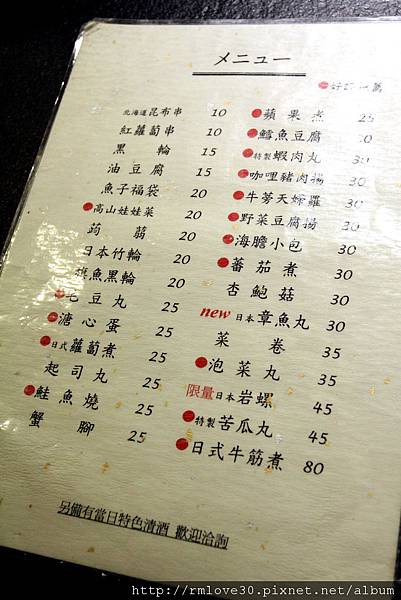 メニュー
北海道昆布串 10
紅蘿蔔串 10
黑輪 15
油豆腐 15
魚子福袋 20
高山娃娃菜 20
蒟蒻 20
日本竹輪 20
旗魚黑輪 20
毛豆丸 25
溏心蛋 25
日式蘿蔔煮 25
起司丸 25
鮭魚燒 25
蟹腳 25
蘋果煮 25
鱈魚豆腐 30
特製蝦肉丸 30
咖哩豬肉揚 30
牛蒡天婦羅 30
野菜豆腐揚 30
海膽小包 30
蕃茄煮 30
杏鮑菇 30
new 日本章魚丸 30
菜卷 35
泡菜丸 35
限量 日本岩螺 45
特製苦瓜丸 45
日式牛筋煮 80
另備有當日特色清酒 歡迎洽詢
http://rmlove30.pixnet.net/album